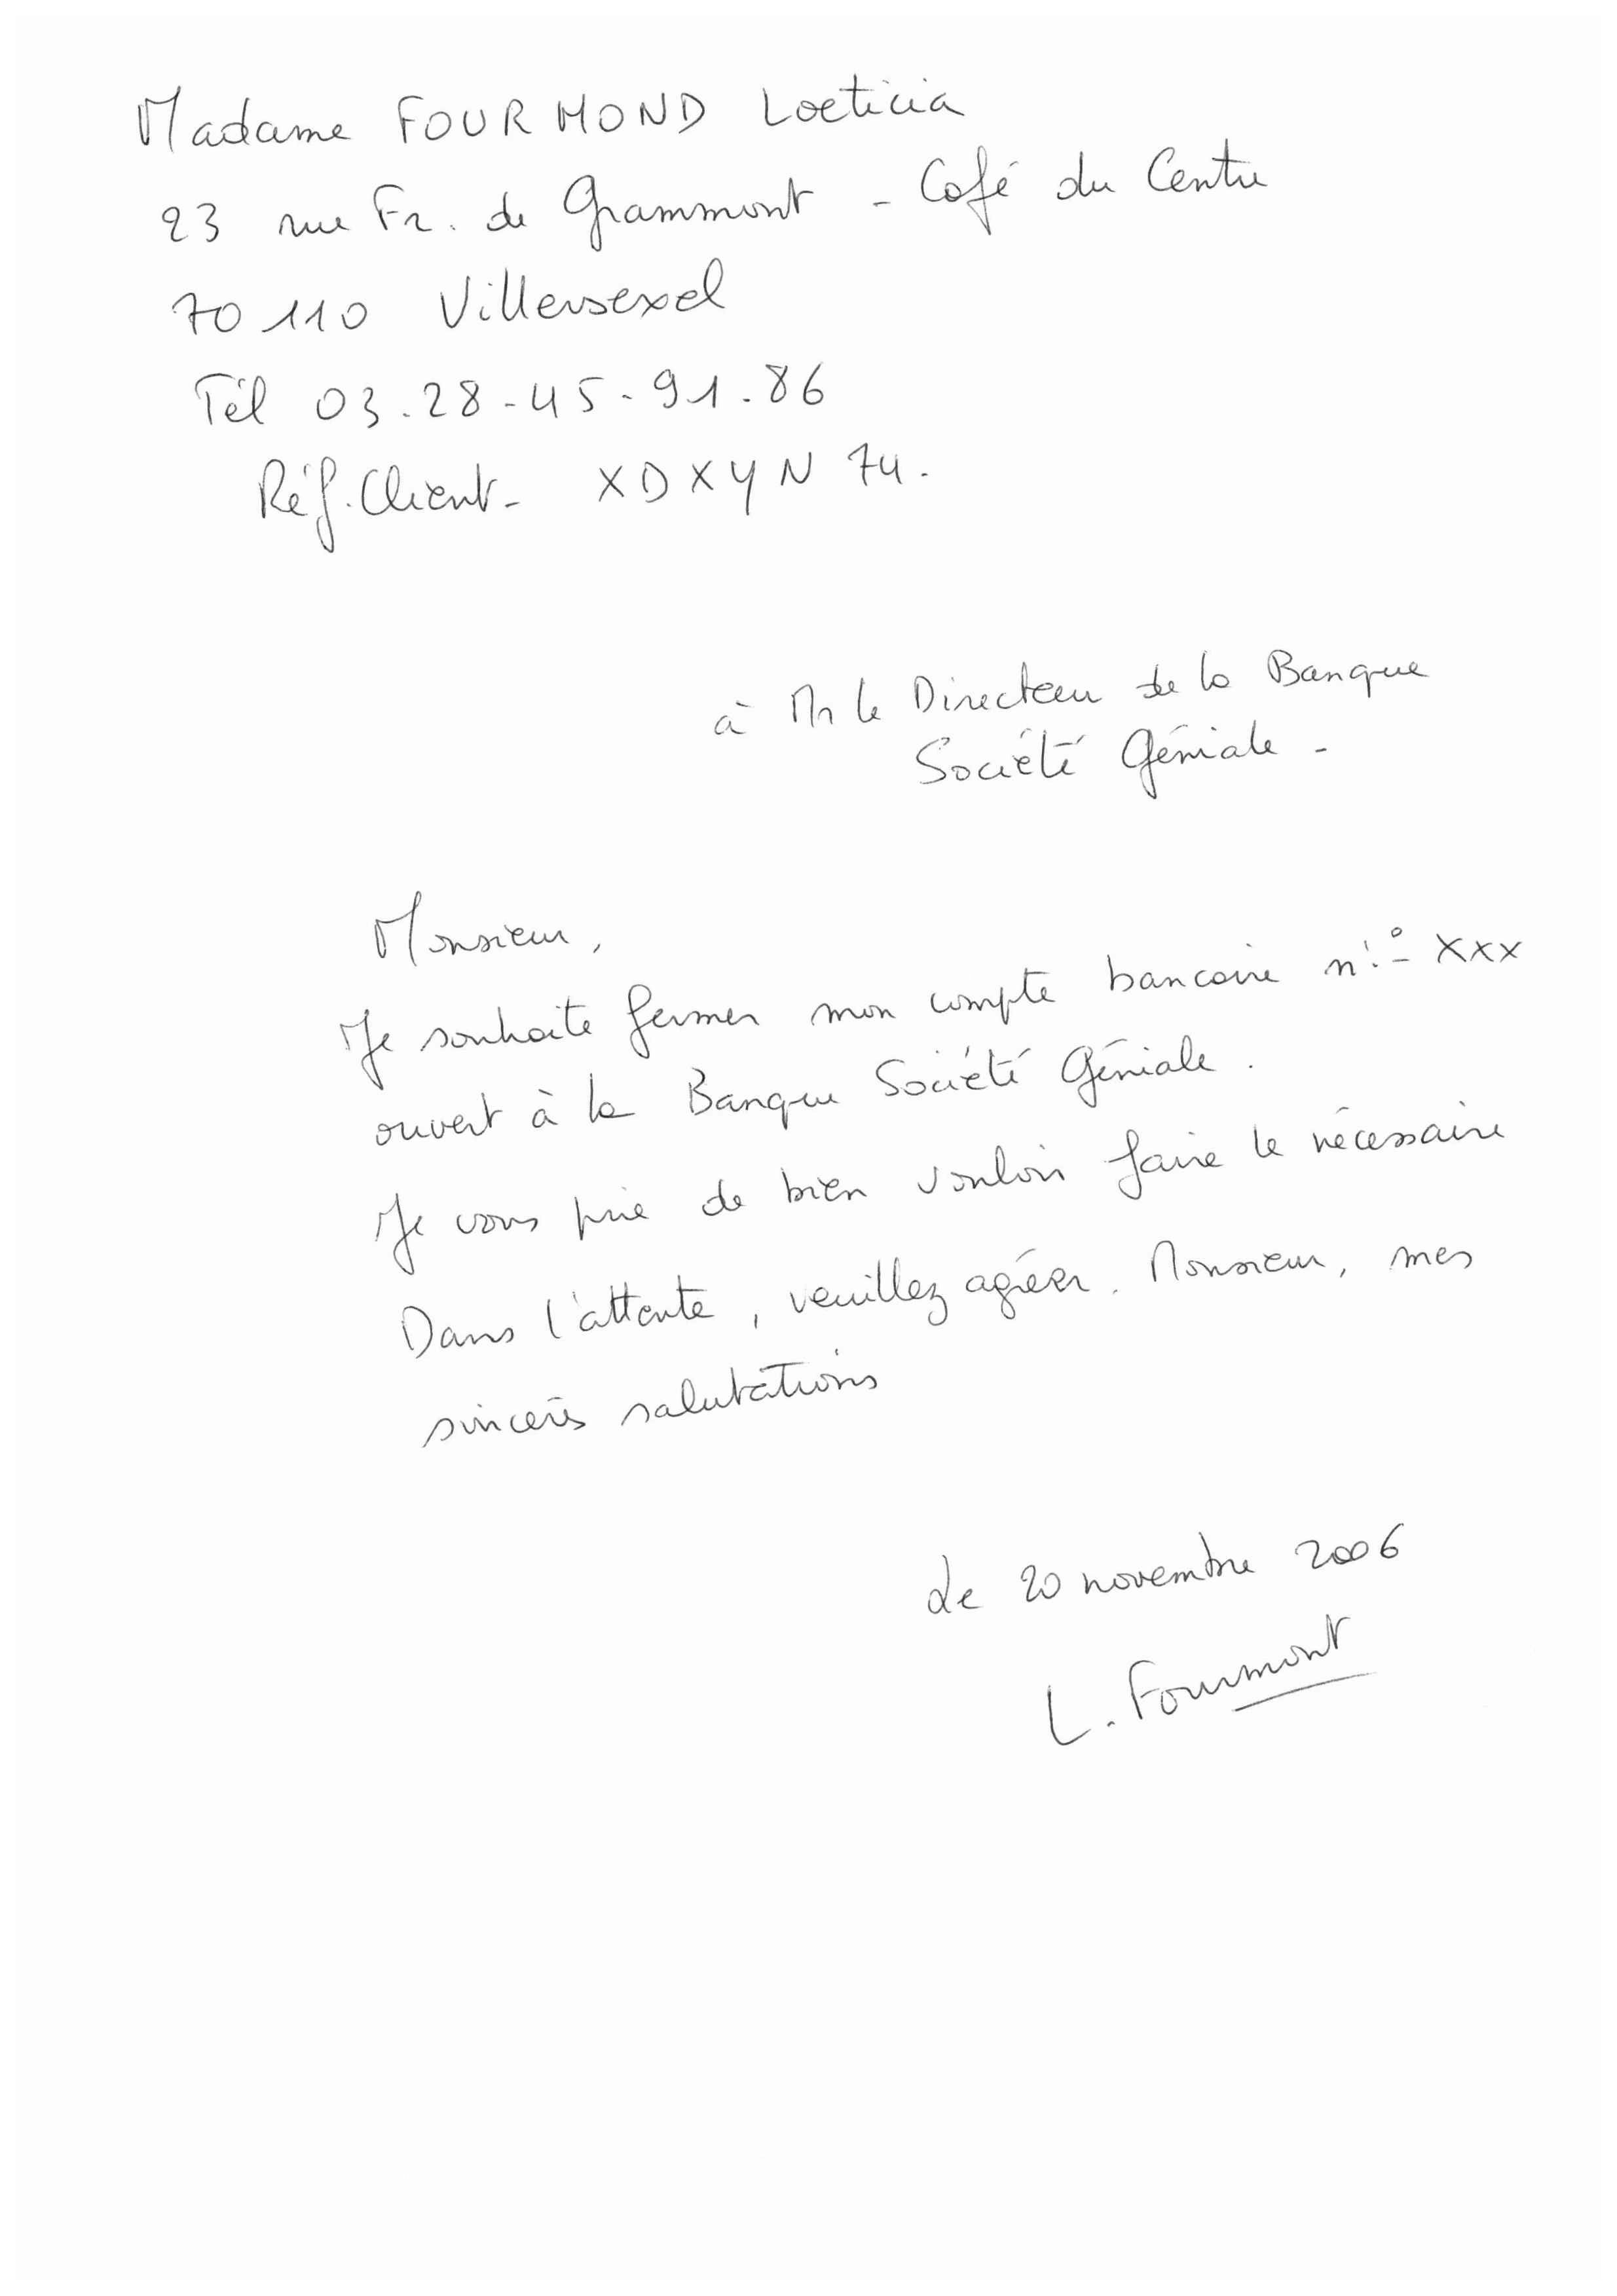 Madame FOURMOND Laeticia
23 rue Fr. de Grammont - Café du Centre
70 110 Villersexel
Tél 03.28-45-91.86
Réf. Client - XDXYN 74.
à Mr le Directeur de la Banque
Société Géniale -
Monsieur,
Je souhaite fermer mon compte bancaire n° XXX
ouvert à la Banque Société Géniale.
Je vous prie de bien vouloir faire le nécessaire
Dans l'attente, veuillez agréer. Monsieur, mes
sincères salutations
Le 20 novembre 2006
L. Fourmont